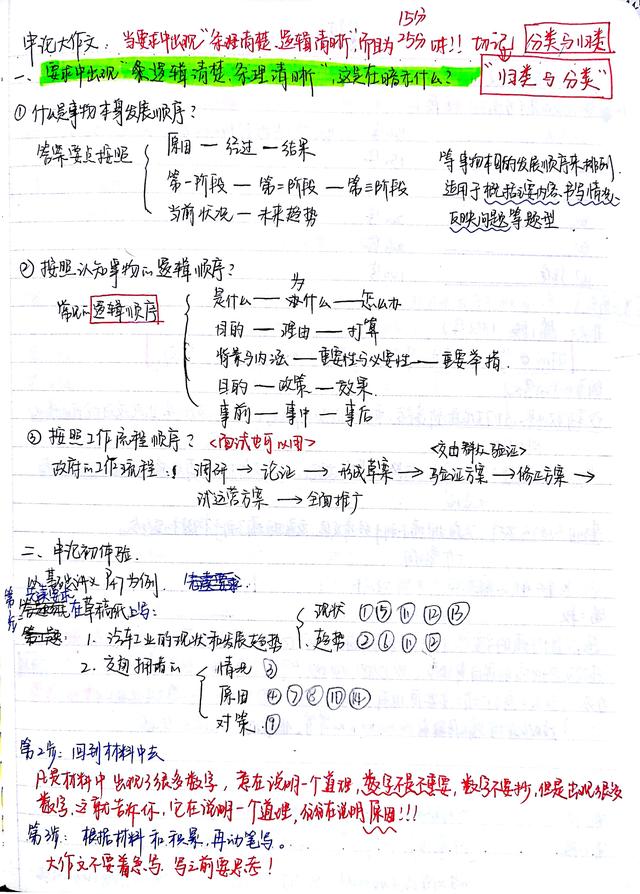 15分
申论大作文：当要求中出现"条理清楚、逻辑清晰",而且为25分时!! 切记 分类与归类
一、要求中出现"条逻辑清楚,条理清晰",这是在暗示什么? "归类与分类"
① 什么是事物本身发展顺序?
原因 — 经过 — 结果
答案要点按照
第一阶段 — 第二阶段 — 第三阶段
当前状况 — 未来趋势
等事物本身的发展顺序来排列.
适用于概括主要内容、书写情况、
反映问题等题型.
② 按照认知事物的逻辑顺序?
常见的逻辑顺序
为
是什么 — 为什么 — 怎么办
目的 — 理由 — 打算
背景与内涵 — 重要性与必要性 — 重要举措.
目的 — 政策 — 效果.
事前 — 事中 — 事后
③ 按照工作流程顺序? <面试也可以用>
<交由群众验证>
政府的工作流程: 调研 → 论证 → 形成草案 → 验证方案 → 修正方案 →
试运营方案 → 全面推广
二、申论初体验.
以基础讲义 例为例.
在草稿纸上写:
1. 汽车工业的现状和发展趋势
现状 ① ⑤ ⑪ ⑫ ⑬
趋势 ② ⑥ ⑪ ⑫
2. 交通拥堵的
情况 ③
原因 ④ ⑦ ⑧ ⑩ ⑭
对策 ⑨
第2步: 回到材料中去
凡是材料中出现了很多数字, 意在说明一个道理, 数字不是不重要, 数字不要抄, 但是出现很多
数字, 这就告诉你, 它在说明一个道理, 份份在说明原因!!!
第3步: 根据材料和积累, 再动笔写。
大作文不要着急写, 写之前要思考!